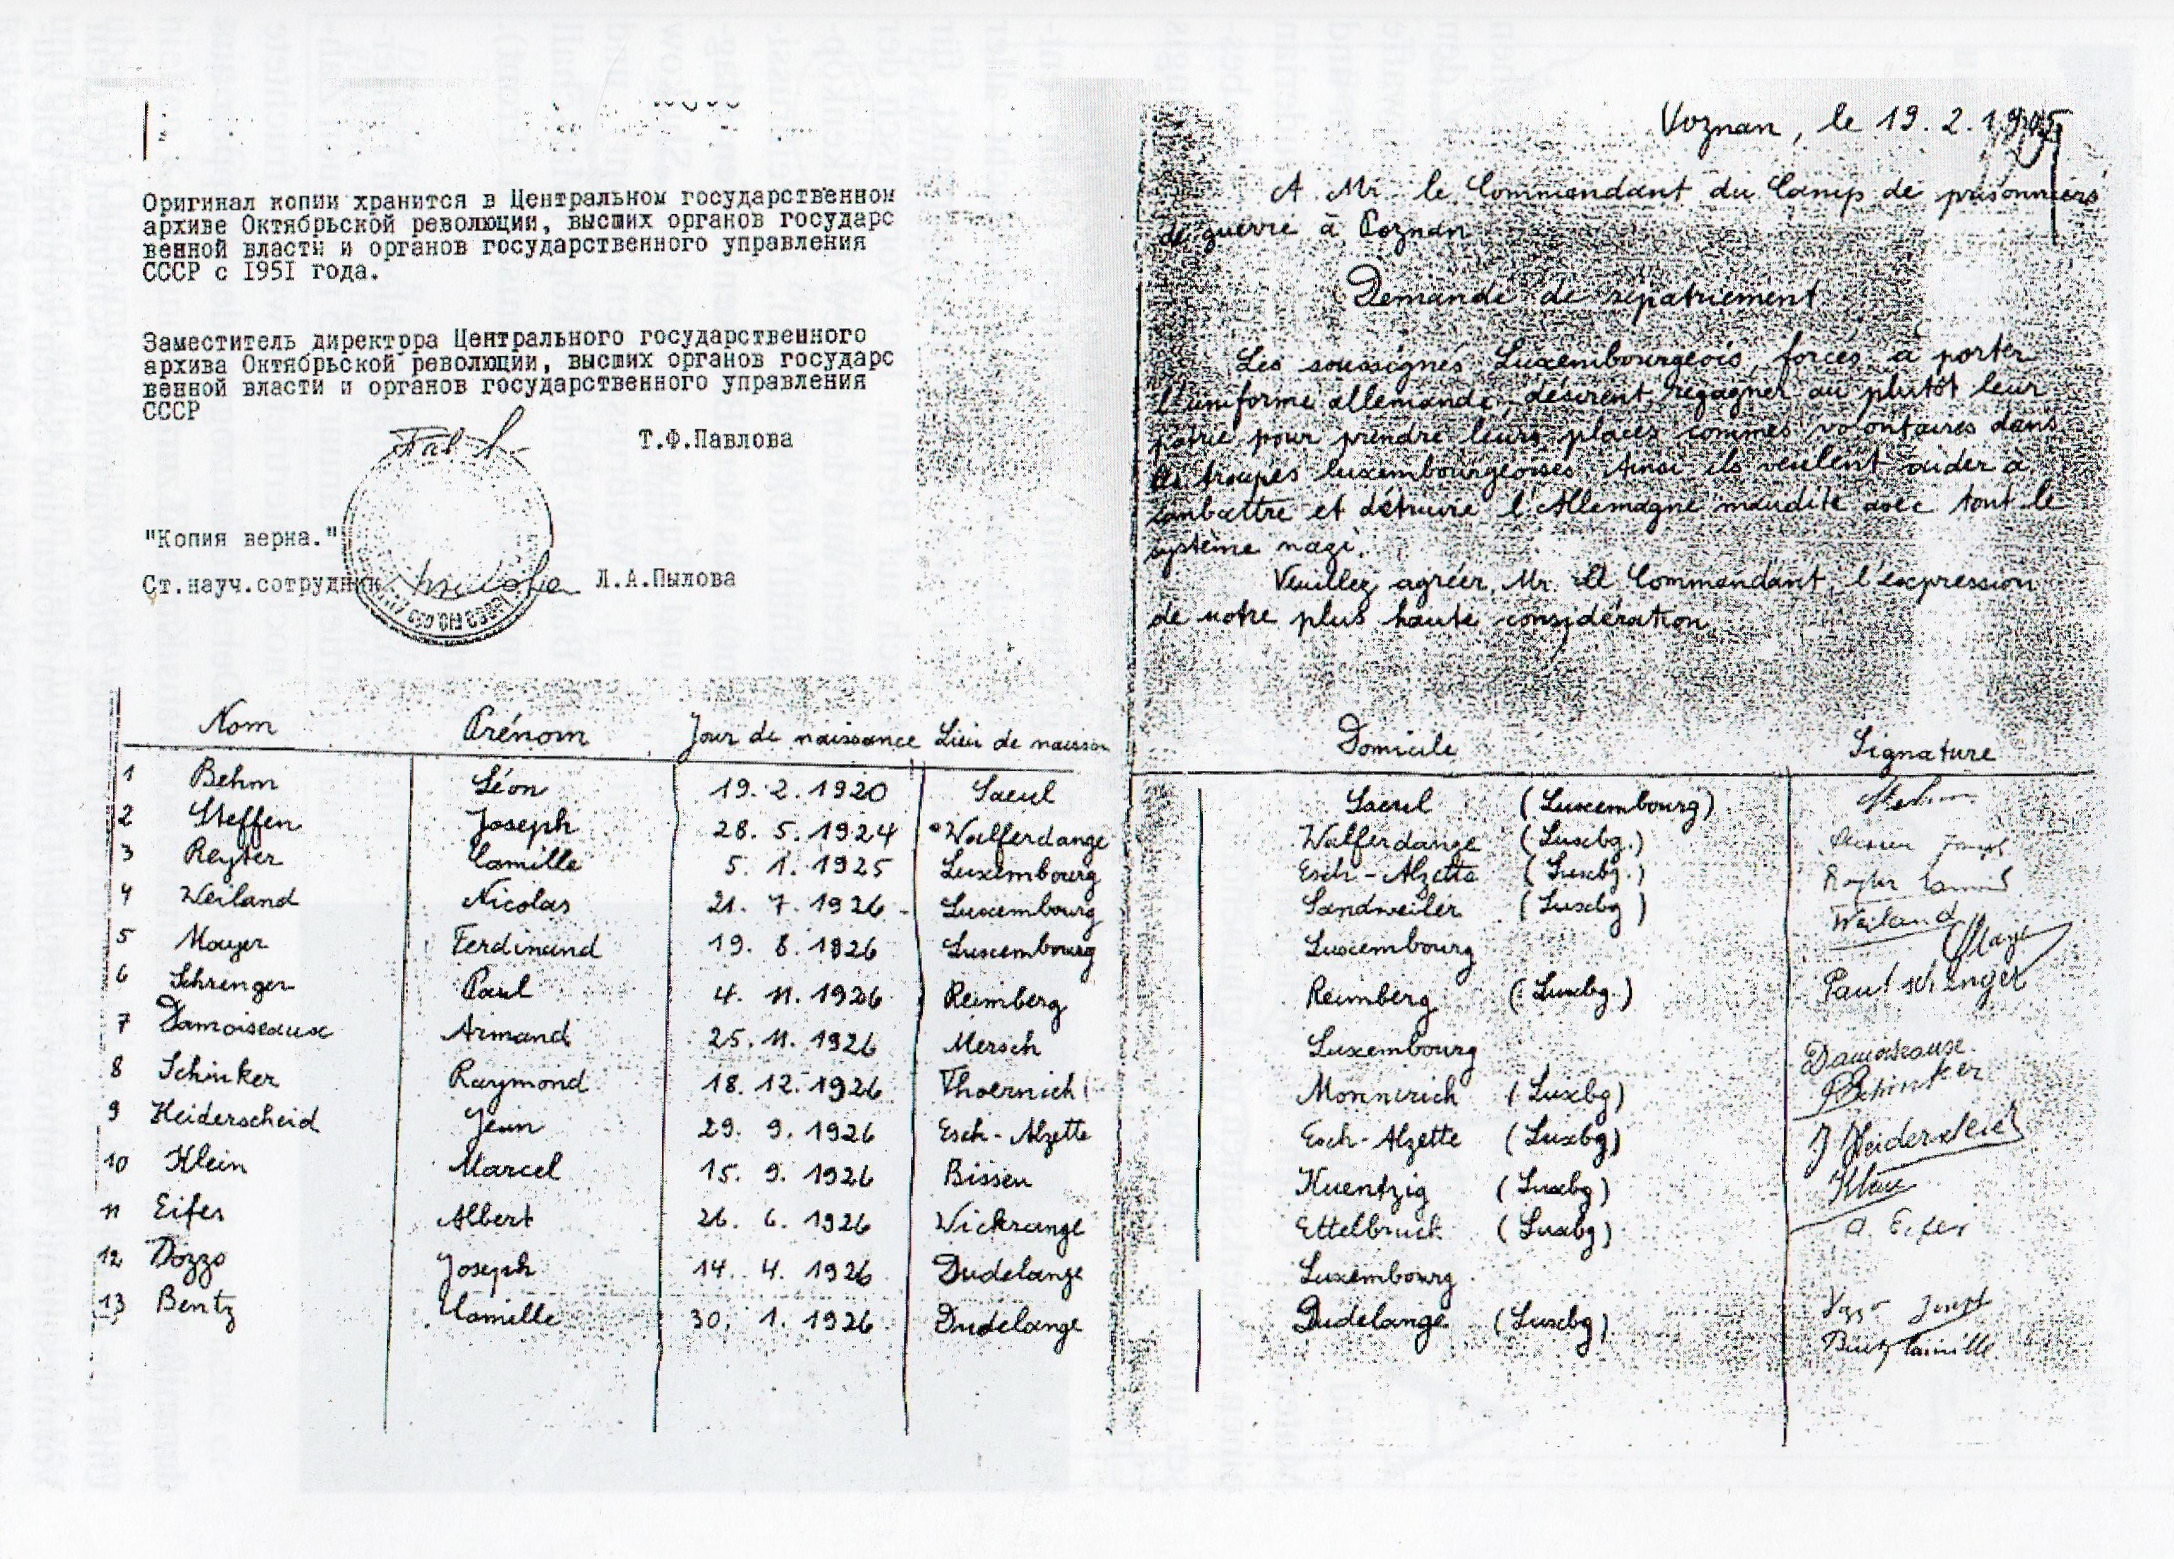 Оригинал копии хранится в Центральном государственном
архиве Октябрьской революции, высших органов государс
венной власти и органов государственного управления
СССР с 1951 года.
Заместитель директора Центрального государственного
архива Октябрьской революции, высших органов государс
венной власти и органов государственного управления
СССР
Т.Ф.Павлова
"Копия верна."
Ст.науч.сотрудник Л.А.Пылова
Poznan, le 19. 2. 1945
A Mr. le Commandant du Camp de prisonniers
de guerre à Poznan
Demande de répatriement
Les soussignés Luxembourgeois, forcés à porter
l'uniforme allemande, désirent regagner au plutôt leur
patrie pour prendre leurs places commes volontaires dans
les troupes luxembourgeoises. Ainsi ils veulent aider à
combattre et détruire l'Allemagne maudite avec tout le
système nazi.
Veuillez agréer, Mr. le Commandant, l'expression
de notre plus haute considération
Nom Prénom Jour de naissance Lieu de naissan Domicile Signature
1 Behm Léon 19. 2. 1920 Saeul Saeul (Luxembourg)
2 Steffen Joseph 28. 5. 1924 Walferdange Walferdange (Luxbg.)
3 Reyter Camille 5. 1. 1925 Luxembourg Esch-Alzette (Luxbg.) Reyter
4 Weiland Nicolas 21. 7. 1926 Luxembourg Sandweiler (Luxbg) Weiland
5 Mayer Ferdinand 19. 8. 1926 Luxembourg Luxembourg Mayer
6 Schrenger Paul 4. 11. 1926 Reimberg Reimberg (Luxbg.) Paul Schrenger
7 Damoiseaux Armand 25. 11. 1926 Mersch Luxembourg Damoiseaux
8 Schinker Raymond 18. 12. 1926 Thoernich Monnerich (Luxbg) R Schinker
9 Heiderscheid Jean 29. 9. 1926 Esch-Alzette Esch-Alzette (Luxbg) J Heiderscheid
10 Klein Marcel 15. 9. 1926 Bissen Kuentzig (Luxbg) Klein
11 Eifes Albert 26. 6. 1926 Wickrange Ettelbruck (Luxbg) A. Eifes
12 Dozzo Joseph 14. 4. 1926 Dudelange Luxembourg Joseph
13 Bentz Camille 30. 1. 1926 Dudelange Dudelange (Luxbg) Bentz Camille